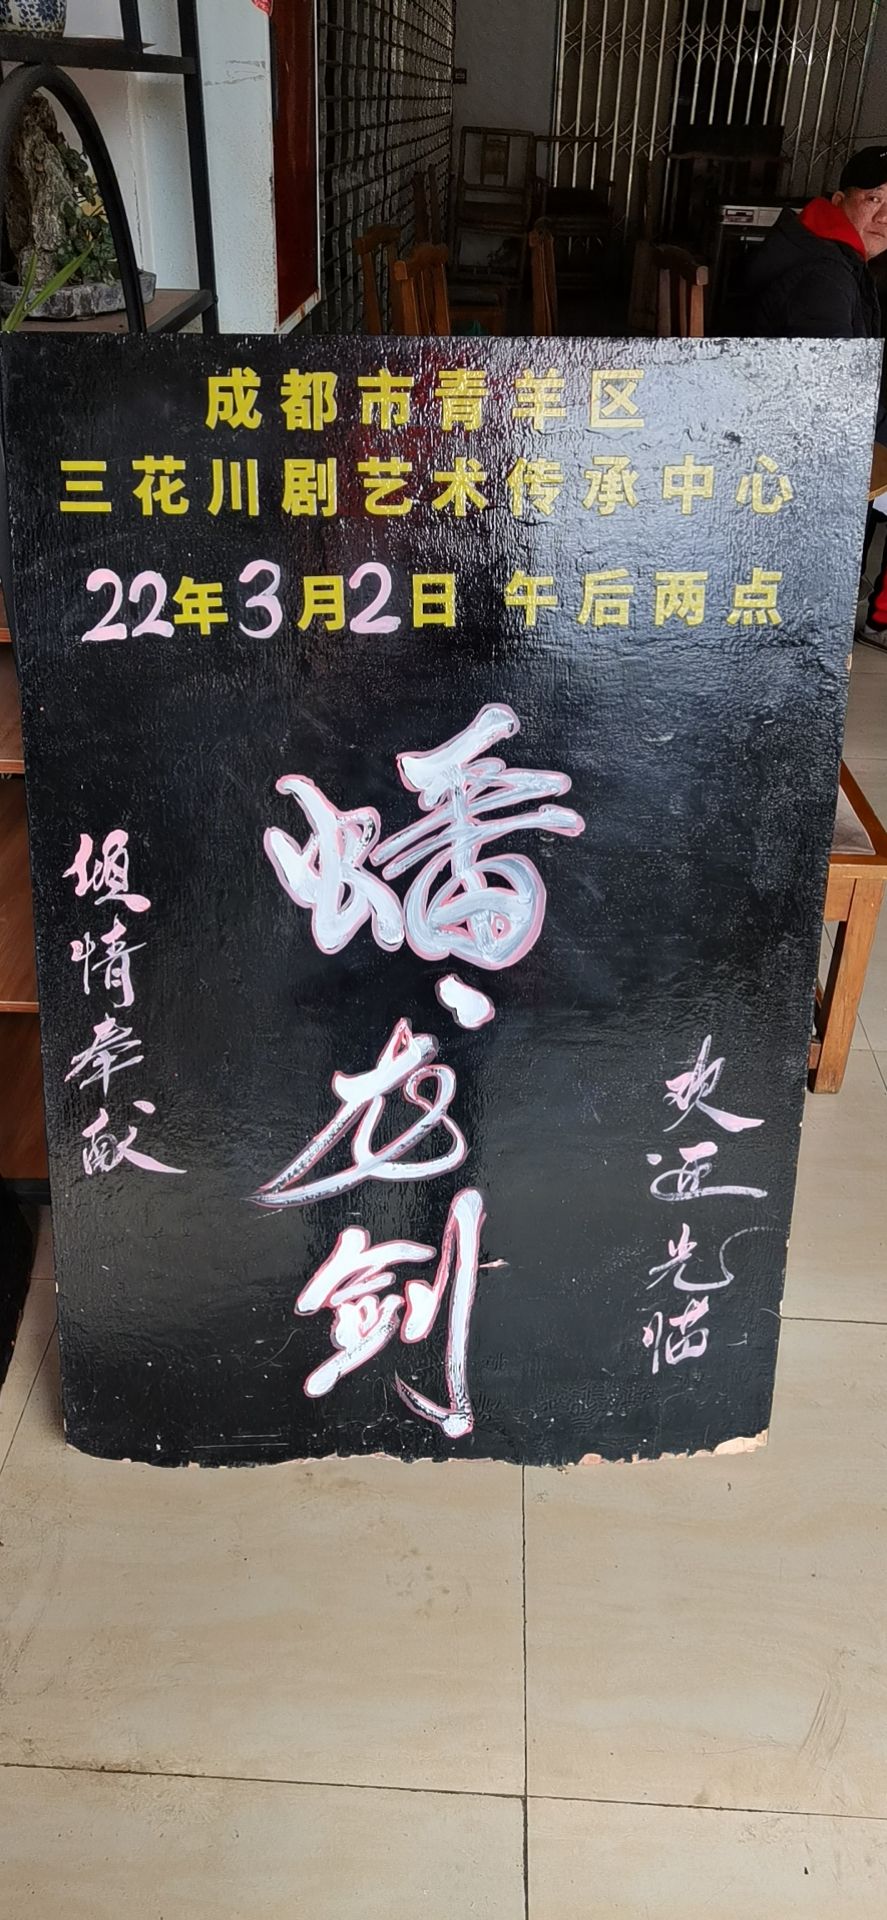 成都市青羊区
三花川剧艺术传承中心
22年3月2日 午后两点
蟠龙剑
倾情奉献
欢迎光临